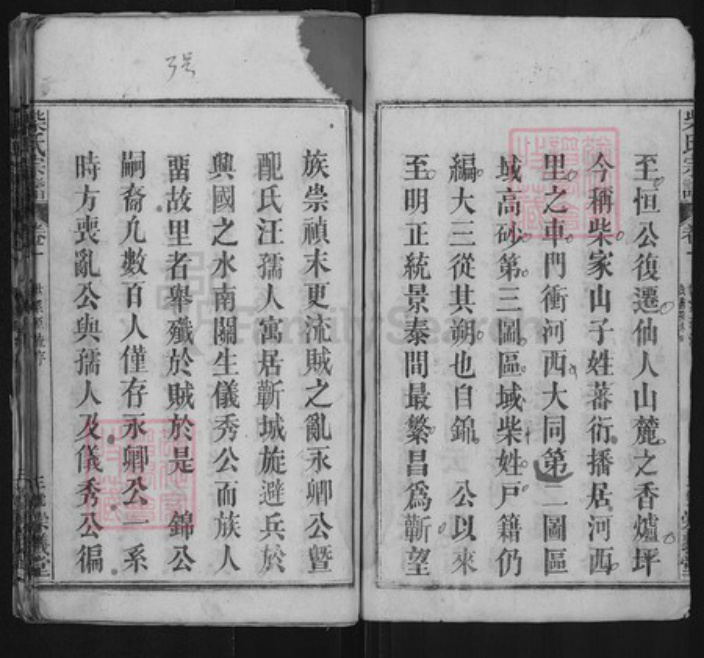 至恒公復遷仙人山麓之香爐坪
今稱柴家山子姓蕃衍播居河西
里之車門衝河西大同第二圖區
域高砂第三圖區域柴姓戸籍仍
編大三從其朔也自錦 公以來
至明正統景泰間最繁昌爲蘄望
族崇禎末更流賊之亂永卿公暨
配氏汪孺人寓居蘄城旋避兵於
興國之水南關生儀秀公而族人
畱故里者舉殲於賊於是 錦公
嗣裔凢數百人僅存永卿公一系
時方喪亂公與孺人及儀秀公徧
柴氏宗譜
FamilySearch